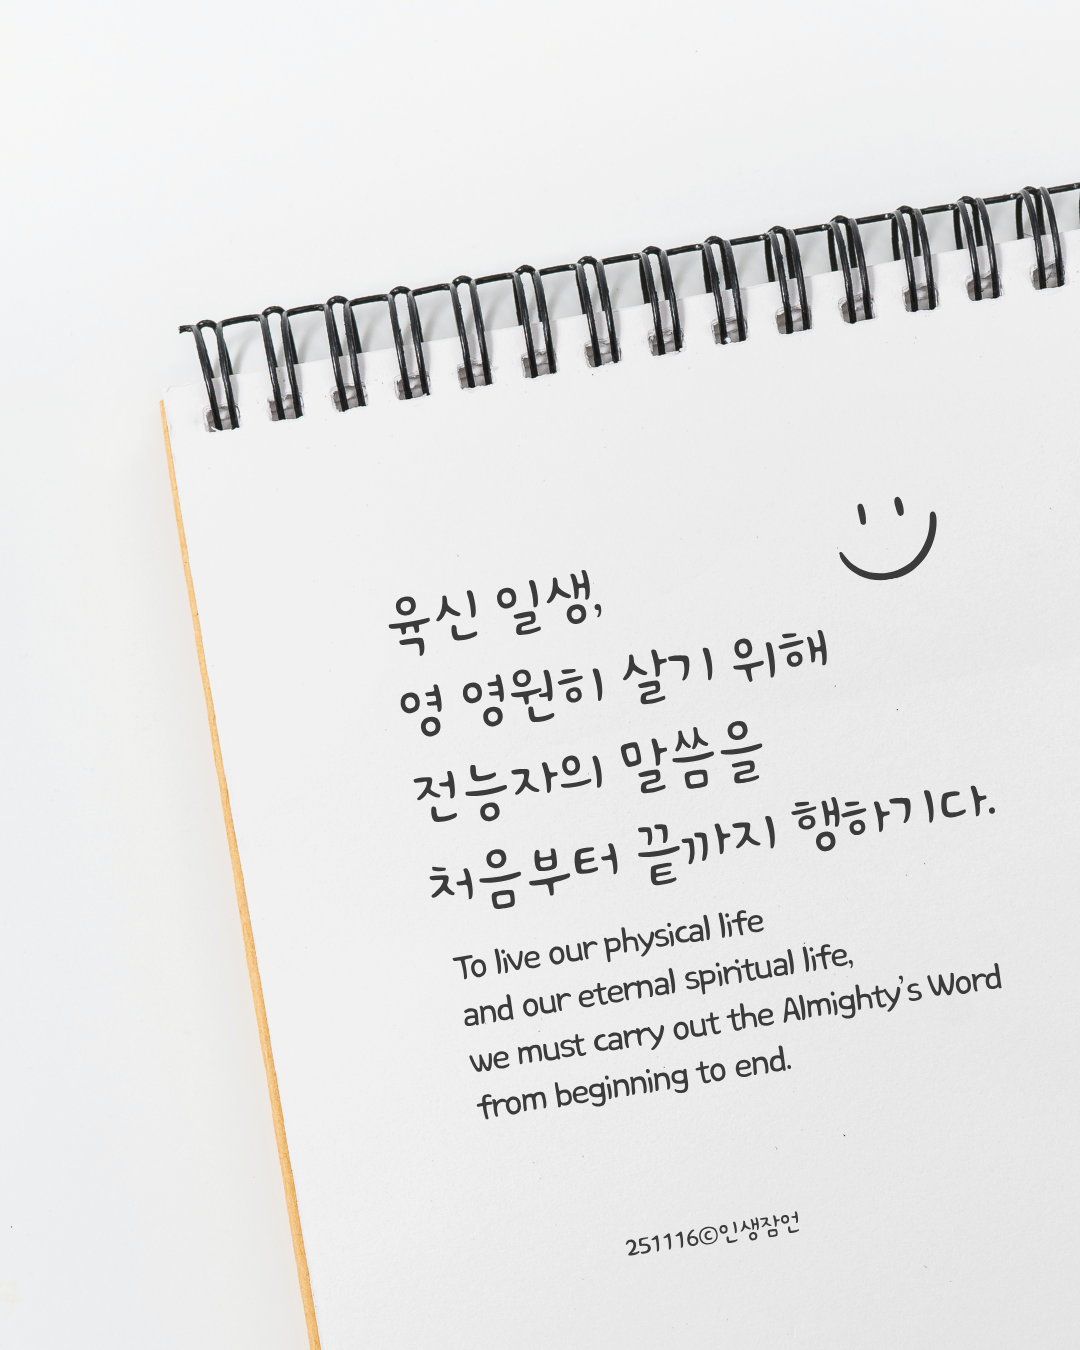 육신 일생,
영 영원히 살기 위해
전능자의 말씀을
처음부터 끝까지 행하기다.
To live our physical life
and our eternal spiritual life,
we must carry out the Almighty's Word
from beginning to end.
251116©인생잠언